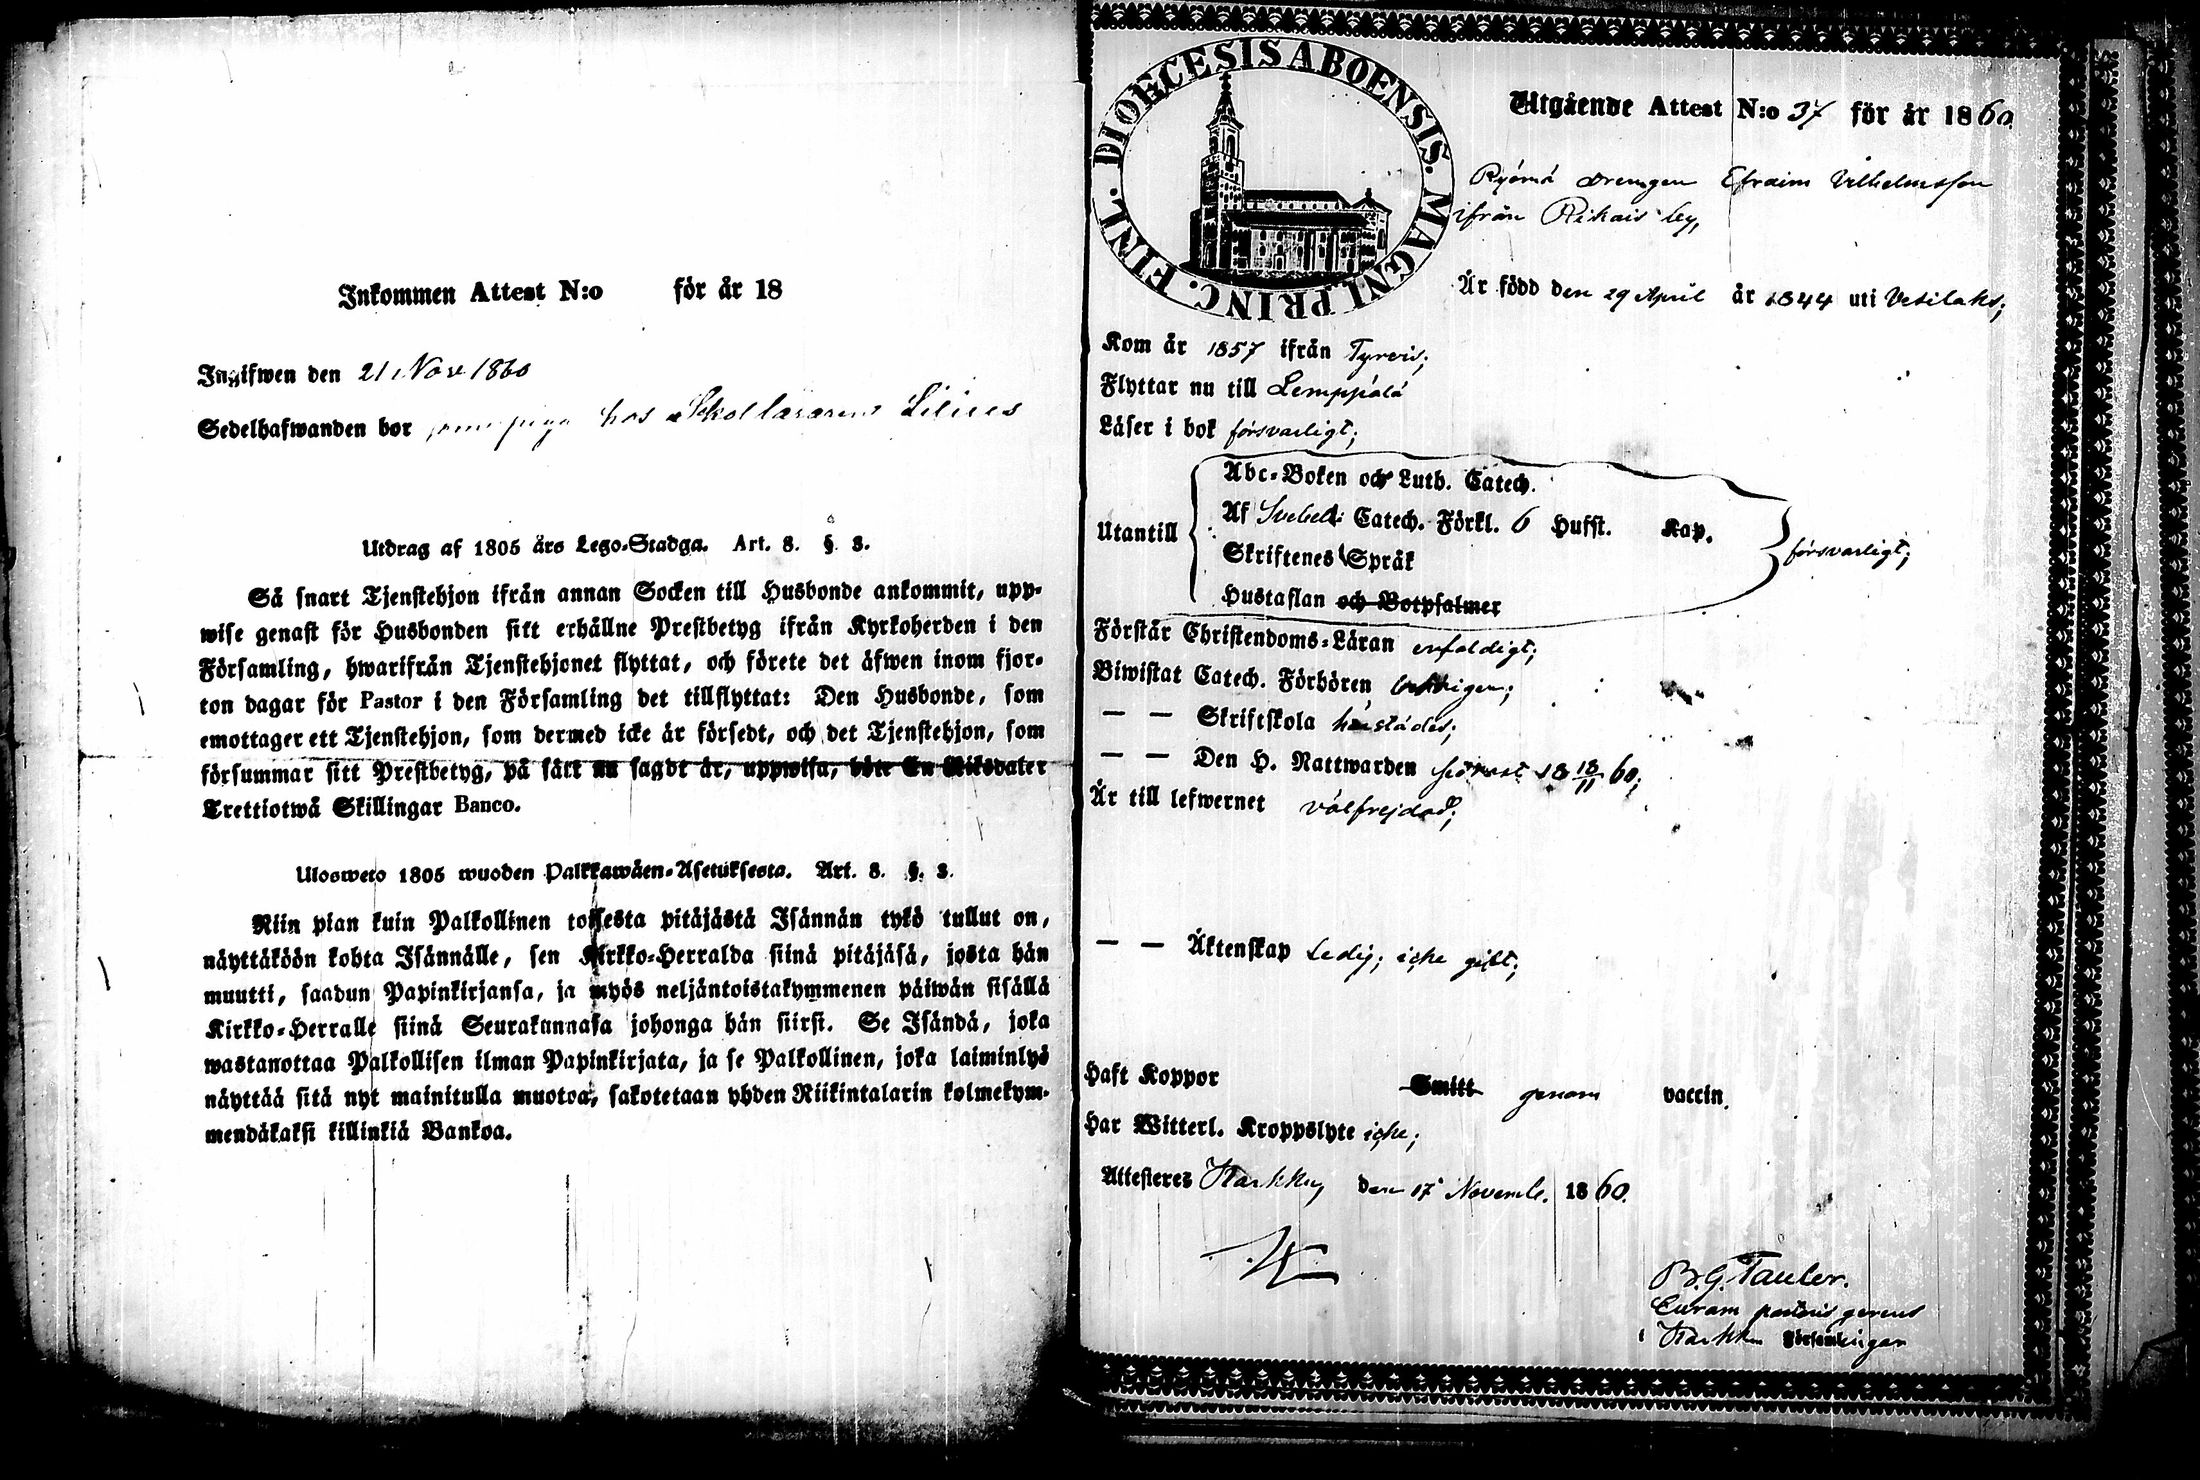 Inkommen Attest N:o för år 18
Ingifwen den 21 Nov 1860
Sedelhafwanden bor som piga hos Skolläraren
Utdrag af 1805 års Lego-Stadga. Art. 8. §. 3.
Så snart Tjenstehjon ifrån annan Socken till Husbonde ankommit, upp-
wise genast för Husbonden sitt erhållne Prestbetyg ifrån Kyrkoherden i den
Församling, hwarifrån Tjenstehjonet flyttat, och förete det äfwen inom fjor-
ton dagar för Pastor i den Församling det tillflyttat: Den Husbonde, som
emottager ett Tjenstehjon, som dermed icke är försedt, och det Tjenstehjon, som
försummar sitt Prestbetyg, på sätt nu sagdt är, uppwisa, böte En Riksdaler
Trettiotwå Skillingar Banco.
Ulosweto 1805 wuoden Palkkawäen-Asetuksesta. Art. 8. §. 3.
Niin pian kuin Palkollinen toisesta pitäjästä Isännän tykö tullut on,
näyttäköön kohta Isännälle, sen Kirkko-Herralda siinä pitäjäsä, josta hän
muutti, saadun Papinkirjansa, ja myös neljäntoistakymmenen päiwän sisällä
Kirkko-Herralle siinä Seurakunnasa johonga hän siirsi. Se Isändä, joka
wastanottaa Palkollisen ilman Papinkirjata, ja se Palkollinen, joka laiminlyö
näyttää sitä nyt mainitulla muotoa, sakotetaan yhden Riikintalarin kolmekym-
mendäkaksi killinkiä Bankoa.
DIOECESIS ABOENSIS. MAGNI PRINC. FINL.
Utgående Attest N:o 37 för år 1860
drengen Efraim Vilhelmsson
ifrån by,
Är född den 29 April år 1844 uti Vesilaks;
Kom år 1857 ifrån Tyrvis;
Flyttar nu till Lemppälä
Läser i bok försvarligt;
Utantill
Abc-Boken och Luth. Catech.
Af Svebeli Catech. Förkl. 6 Hufst. Kap.
Skriftenes Språk
Hustaflan och Botpsalmer
försvarligt;
Förstår Christendoms-Läran enfaldigt;
Biwistat Catech. Förhören
— — Skriftskola härstädes;
— — Den H. Nattwarden först 18 18/11 60;
Är till lefwernet välfrejdad;
— — Äktenskap Ledig; icke gift;
Haft Koppor Smitt genom vaccin.
Har Witterl. Kroppslyte icke;
Attesteres Karkku den 17 Novemb. 1860.
B.G. Tauler.
Curam pastoris gerens
i Karkku Församlingar